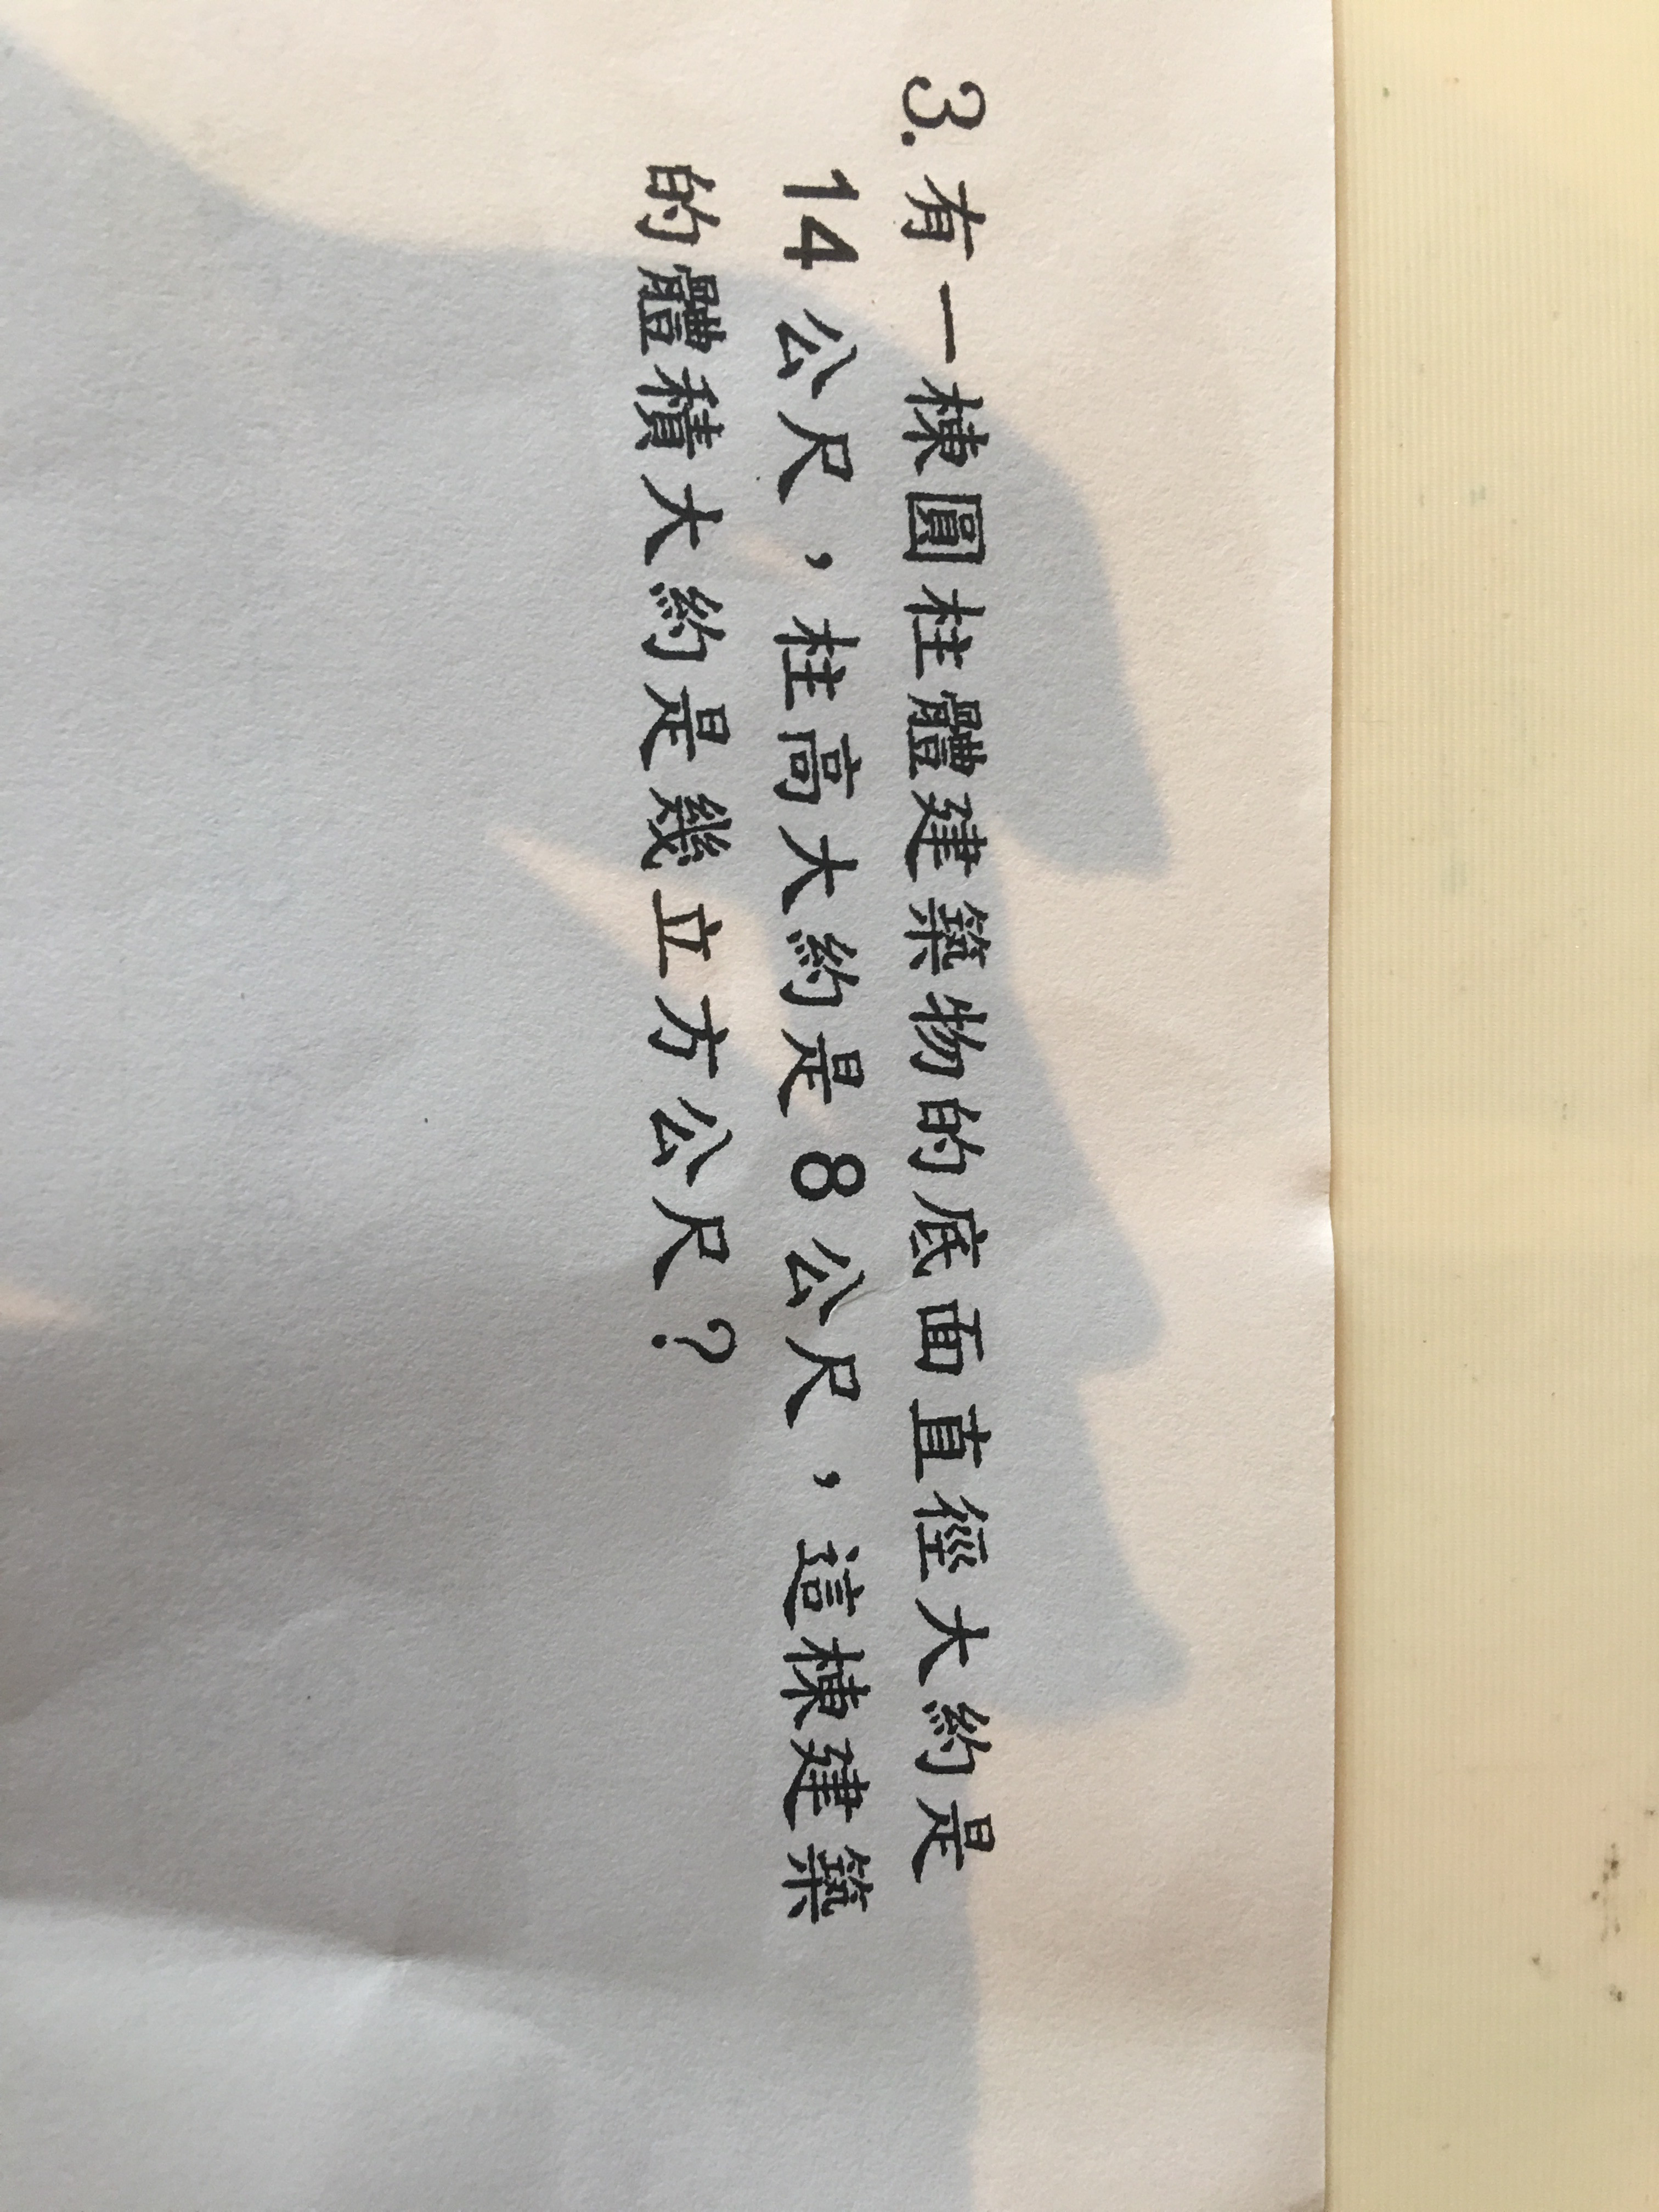 3.有一棟圓柱體建築物的底面直徑大約是
14公尺，柱高大約是8公尺，這棟建築
的體積大約是幾立方公尺？